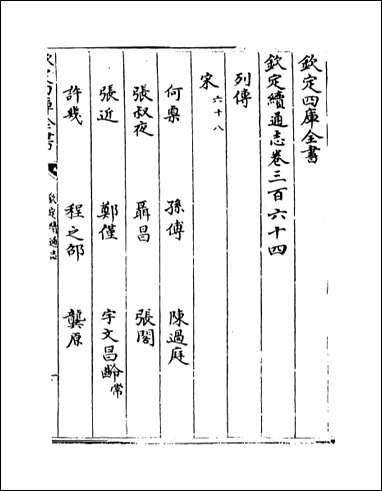 欽定四庫全書
欽定續通志卷三百六十四
列傳
宋 六十八
何㮚 孫傅 陳過庭
張叔夜 聶昌 張閣
張近 鄭僅 宇文昌齡 常
許幾 程之邵 龔原
欽定四庫全書 欽定續通志